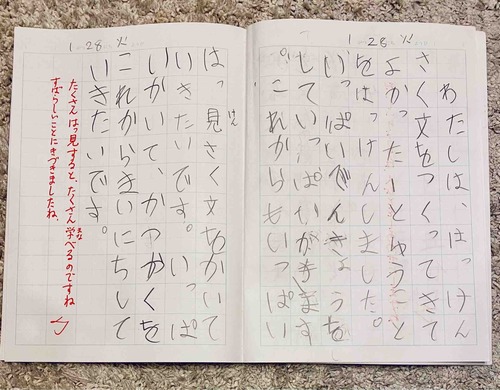 1 28 火
わたしは、はっけん
さく文をつくってきて
よかったーとゆうこと
をはっけんしました。
いっぱいべんきょうを
していっぱいがきます
。これからもいっぱい
1 28 火
はっ見さく文をかいて
けん
いきたいです。いっぱ
いかいて、かつかくを
これからまいにちして
いきたいです。
たくさんはっ見すると、たくさん学べるのですね
まな
すばらしいことにきづきましたね。